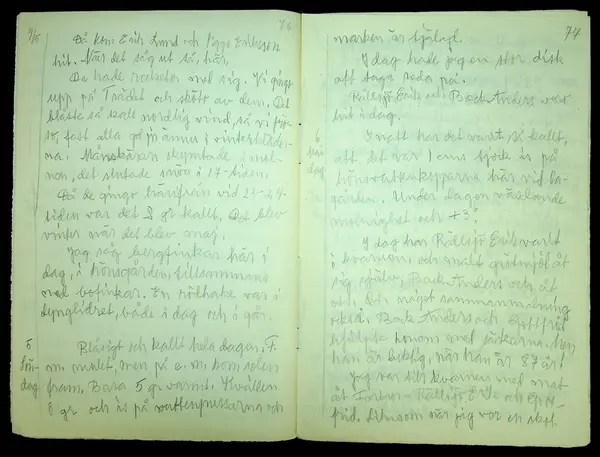 4/5
76
Då kom Erik Lund och Viggo Eriksson
hit. När det såg ut så, här.
De hade raketer med sig. Vi gingo
upp på Trädet och sköt av dem. Det
blåste så kall nordlig vind, så vi frö-
so, fast alla gå ju ännu i vinterkläder-
na. Månskäran skymtade i mol-
nen, det slutade snöa i 17-tiden.
Då de gingo härifrån vid 23-24-
tiden var det 2 gr kallt. Det blev
vinter när det blev maj.
Jag såg bergfinkar här i
dag, i hönsgården, tillsammans
med bofinkar. En rödhake var i
dynglidret, både i dag och i går.
5
Sön-
dag
Blåsigt och kallt hela dagen. F.
m. mulet, men på e.m. kom solen
fram. Bara 5 gr varmt. Kvällen
0 gr och is på vattenpussarna och
77
marken är tjälig.
I dag hade jag en stor disk
att taga reda på.
Rällsjö Erik och Back Anders var
hit i dag.
6
mån
dag
I natt har det varit så kallt,
att det var 1 cm tjock is på
hönsvattenkopparna här vid la-
gården. Under dagen växlande
molnighet och +3°.
I dag har Rällsjö Erik varit
i kvarnen och malt grötmjöl åt
sig själv, Back Anders och åt
oss. Och något sammanmalning
också. Back Anders och Gottfrid
hjälpte honom med säckarna. Men
han är duktig, när han är 87 år!
Jag var till kvarnen med mat
åt Rällsjö Erik och Gott-
frid. Liksom när jag var en